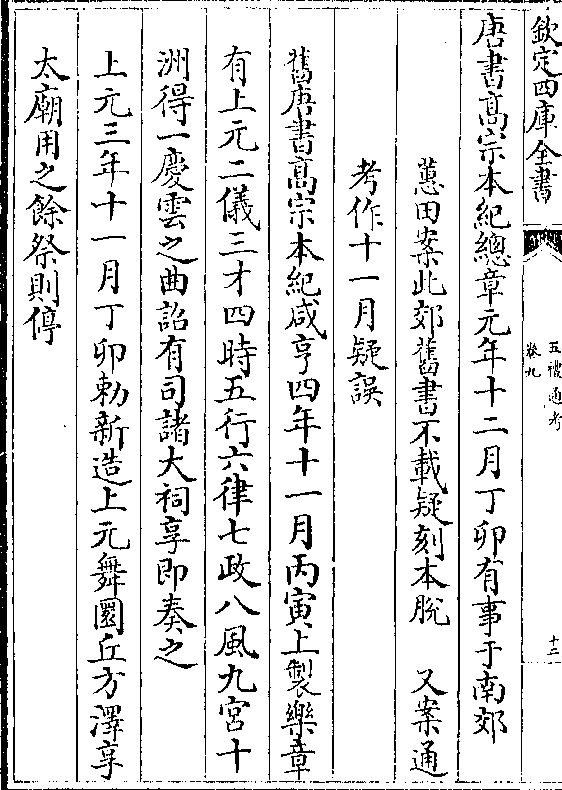 欽定四庫全書
五禮通考
卷九
十三
唐書髙宗本紀總章元年十二月丁卯有事于南郊
蕙田案此郊舊書不載疑刻本脫　又案通
考作十一月疑誤
舊唐書髙宗本紀咸亨四年十一月丙寅上製樂章
有上元二儀三才四時五行六律七政八風九宮十
洲得一慶雲之曲詔有司諸大祠享即奏之
上元三年十一月丁卯勅新造上元舞圜丘方澤享
太廟用之餘祭則停